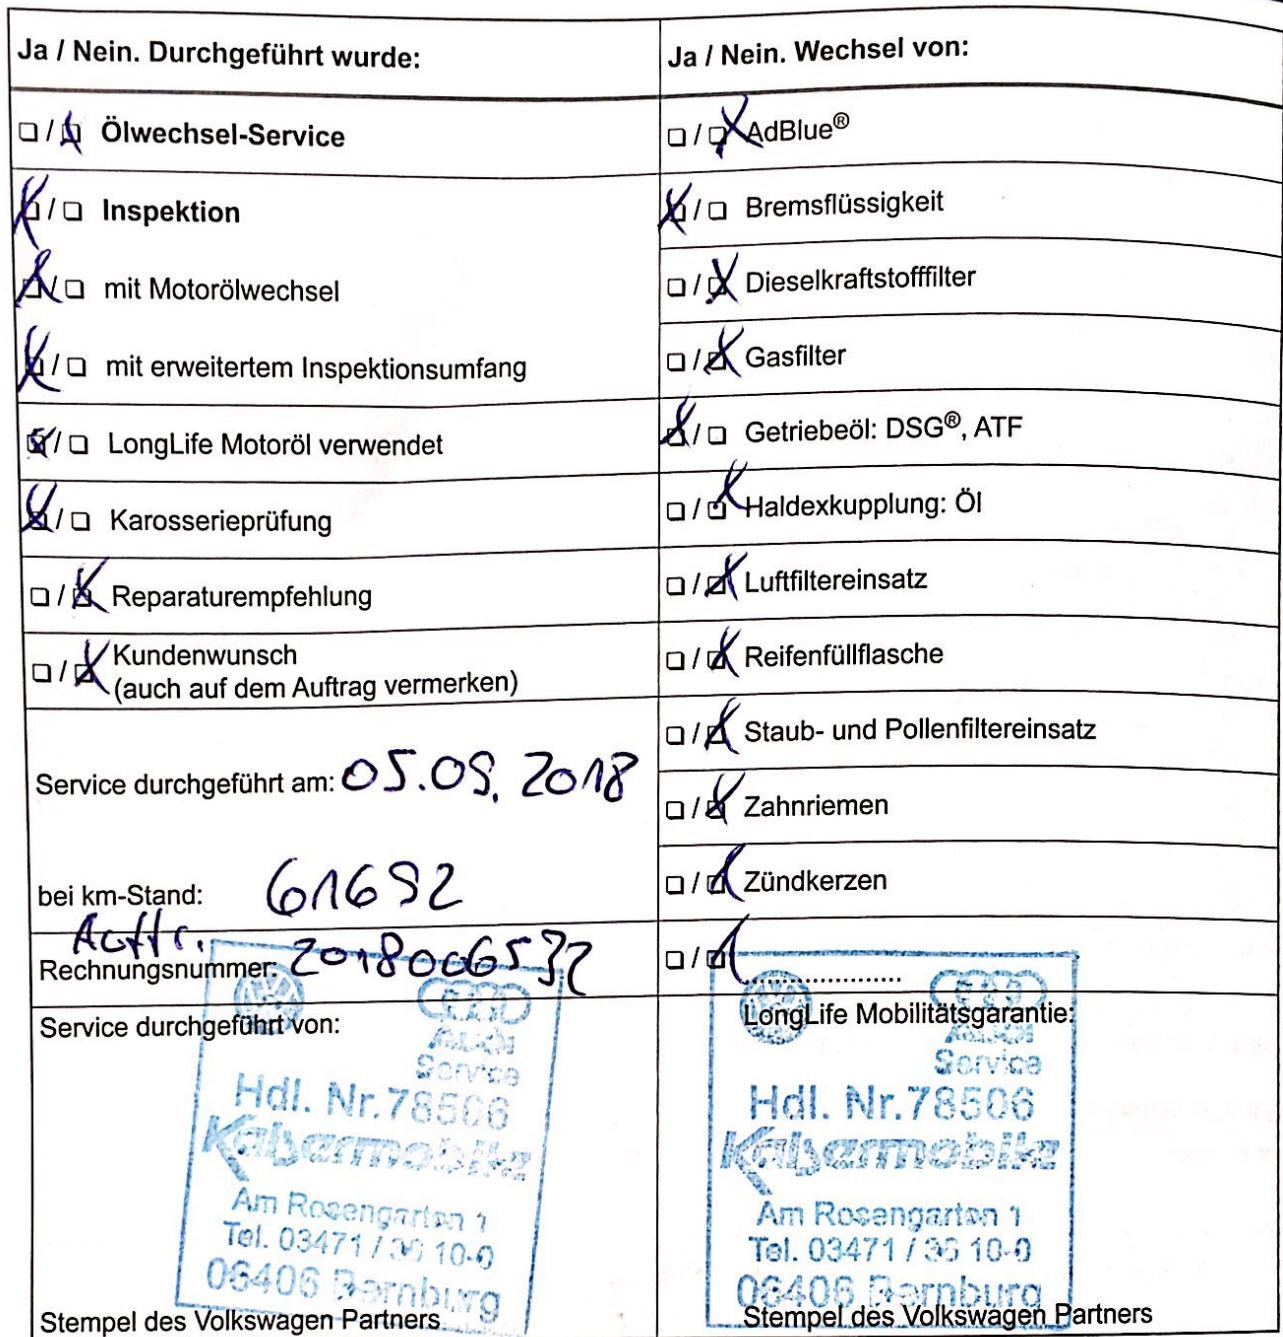 Ja / Nein. Durchgeführt wurde:
☐ / ☒ Ölwechsel-Service
☒ / ☐ Inspektion
☒ / ☐ mit Motorölwechsel
☒ / ☐ mit erweitertem Inspektionsumfang
☒ / ☐ LongLife Motoröl verwendet
☒ / ☐ Karosserieprüfung
☐ / ☒ Reparaturempfehlung
☐ / ☒ Kundenwunsch
(auch auf dem Auftrag vermerken)
Service durchgeführt am: 05.09.2018
bei km-Stand: 61692
Auftr.
Rechnungsnummer: 2018006532
Service durchgeführt von:
Audi
Service
Hdl. Nr.78506
Am Rosengarten 1
Tel. 03471 / 36 10-0
06406 Bernburg
Stempel des Volkswagen Partners
Ja / Nein. Wechsel von:
☐ / ☒ AdBlue®
☒ / ☐ Bremsflüssigkeit
☐ / ☒ Dieselkraftstofffilter
☐ / ☒ Gasfilter
☒ / ☐ Getriebeöl: DSG®, ATF
☐ / ☒ Haldexkupplung: Öl
☐ / ☒ Luftfiltereinsatz
☐ / ☒ Reifenfüllflasche
☐ / ☒ Staub- und Pollenfiltereinsatz
☐ / ☒ Zahnriemen
☐ / ☒ Zündkerzen
☐ / ☒ ....................
LongLife Mobilitätsgarantie:
Audi
Service
Hdl. Nr.78506
Am Rosengarten 1
Tel. 03471 / 36 10-0
06406 Bernburg
Stempel des Volkswagen Partners